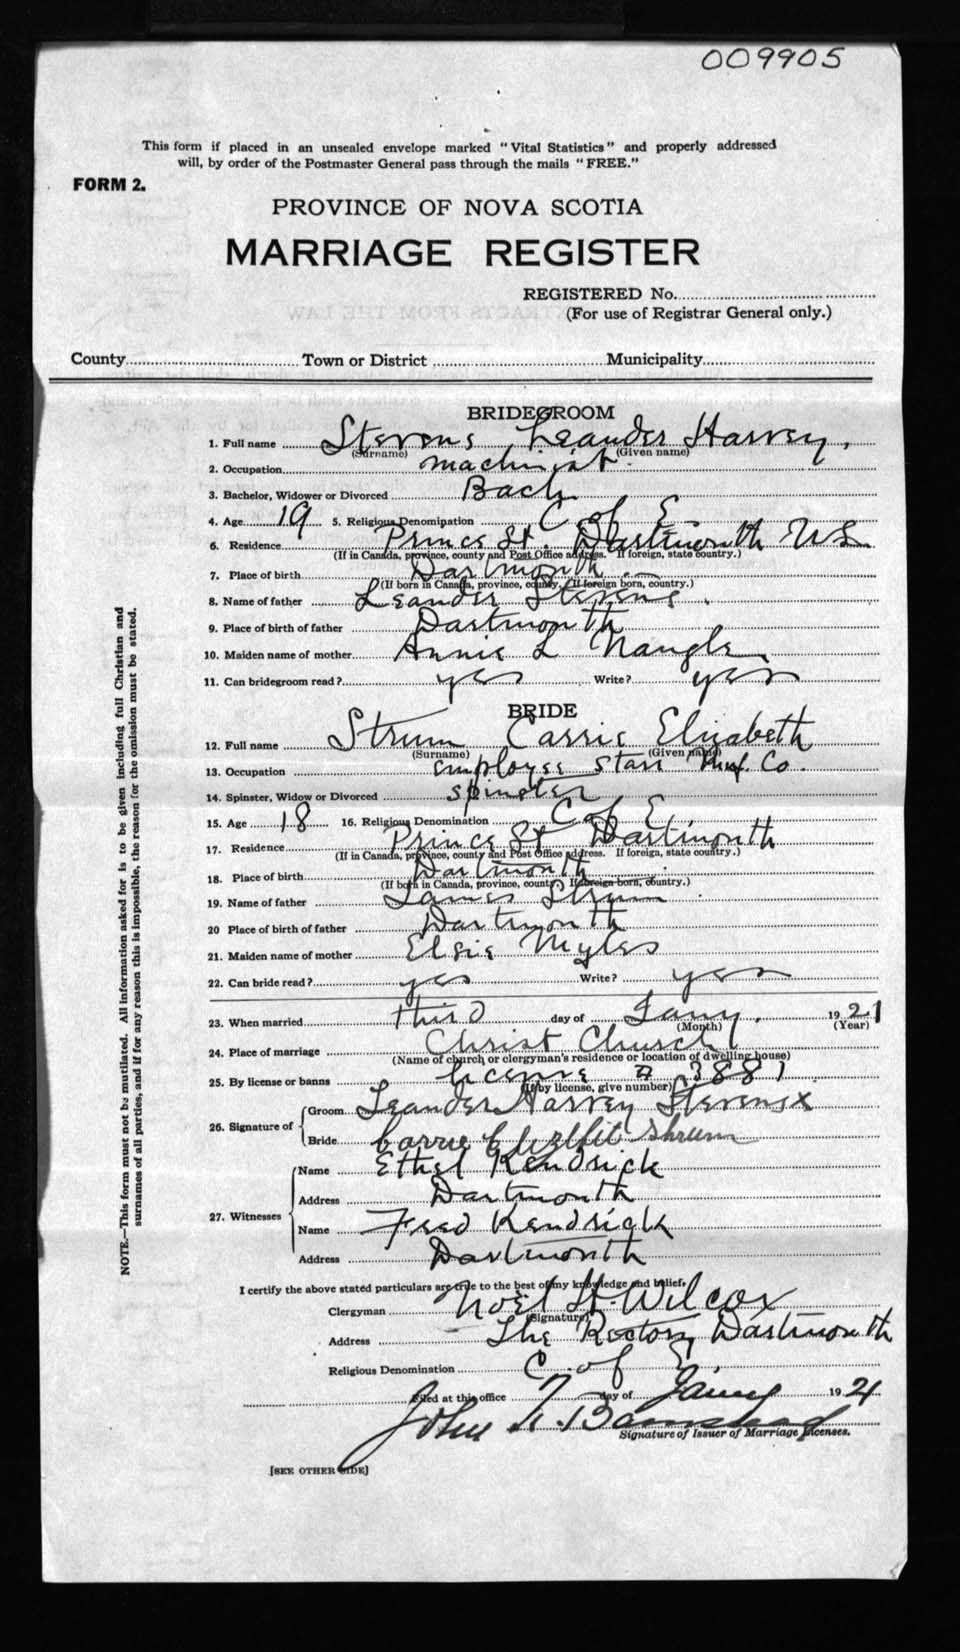 009905
This form if placed in an unsealed envelope marked "Vital Statistics" and properly addressed
will, by order of the Postmaster General pass through the mails "FREE."
FORM 2.
PROVINCE OF NOVA SCOTIA
MARRIAGE REGISTER
REGISTERED No.
(For use of Registrar General only.)
County Town or District Municipality
BRIDEGROOM
1. Full name Stevens Leander Harvey.
(Surname) (Given name)
2. Occupation machinist
3. Bachelor, Widower or Divorced Bach
4. Age 19 5. Religious Denomination C of E
6. Residence Prince St. Dartmouth NS
(If in Canada, province, county and Post Office address. If foreign, state country.)
7. Place of birth Dartmouth
(If born in Canada, province, county. If foreign born, country.)
8. Name of father Leander Stevens.
9. Place of birth of father Dartmouth
10. Maiden name of mother Annie L Naugle
11. Can bridegroom read? yes Write? yes
BRIDE
12. Full name Strum Carrie Elizabeth
(Surname) (Given name)
13. Occupation employee Starr Manf. Co.
14. Spinster, Widow or Divorced spinster
15. Age 18 16. Religious Denomination C of E
17. Residence Prince St Dartmouth
(If in Canada, province, county and Post Office address. If foreign, state country.)
18. Place of birth Dartmouth
(If born in Canada, province, county. If foreign born, country.)
19. Name of father James Strum
20 Place of birth of father Dartmouth
21. Maiden name of mother Elsie Myles
22. Can bride read? yes Write? yes
23. When married third day of Jany. 1921
(Month) (Year)
24. Place of marriage Christ Church
(Name of church or clergyman's residence or location of dwelling house)
25. By license or banns license # 3881
(If by license, give number)
26. Signature of Groom Leander Harvey Stevens x
Bride Carrie Shrum
27. Witnesses Name Ethel Kendrick
Address Dartmouth
Name Fred Kendrick
Address Dartmouth
I certify the above stated particulars are true to the best of my knowledge and belief.
Clergyman Noel H. Wilcox
(Signature)
Address The Rectory Dartmouth
Religious Denomination C of E.
Filed at this office 7 day of Jany 1921
John
Signature of Issuer of Marriage Licenses.
[SEE OTHER SIDE]
NOTE.—This form must not be mutilated. All information asked for is to be given including full Christian and
surnames of all parties, and if for any reason this is impossible, the reason for the omission must be stated.